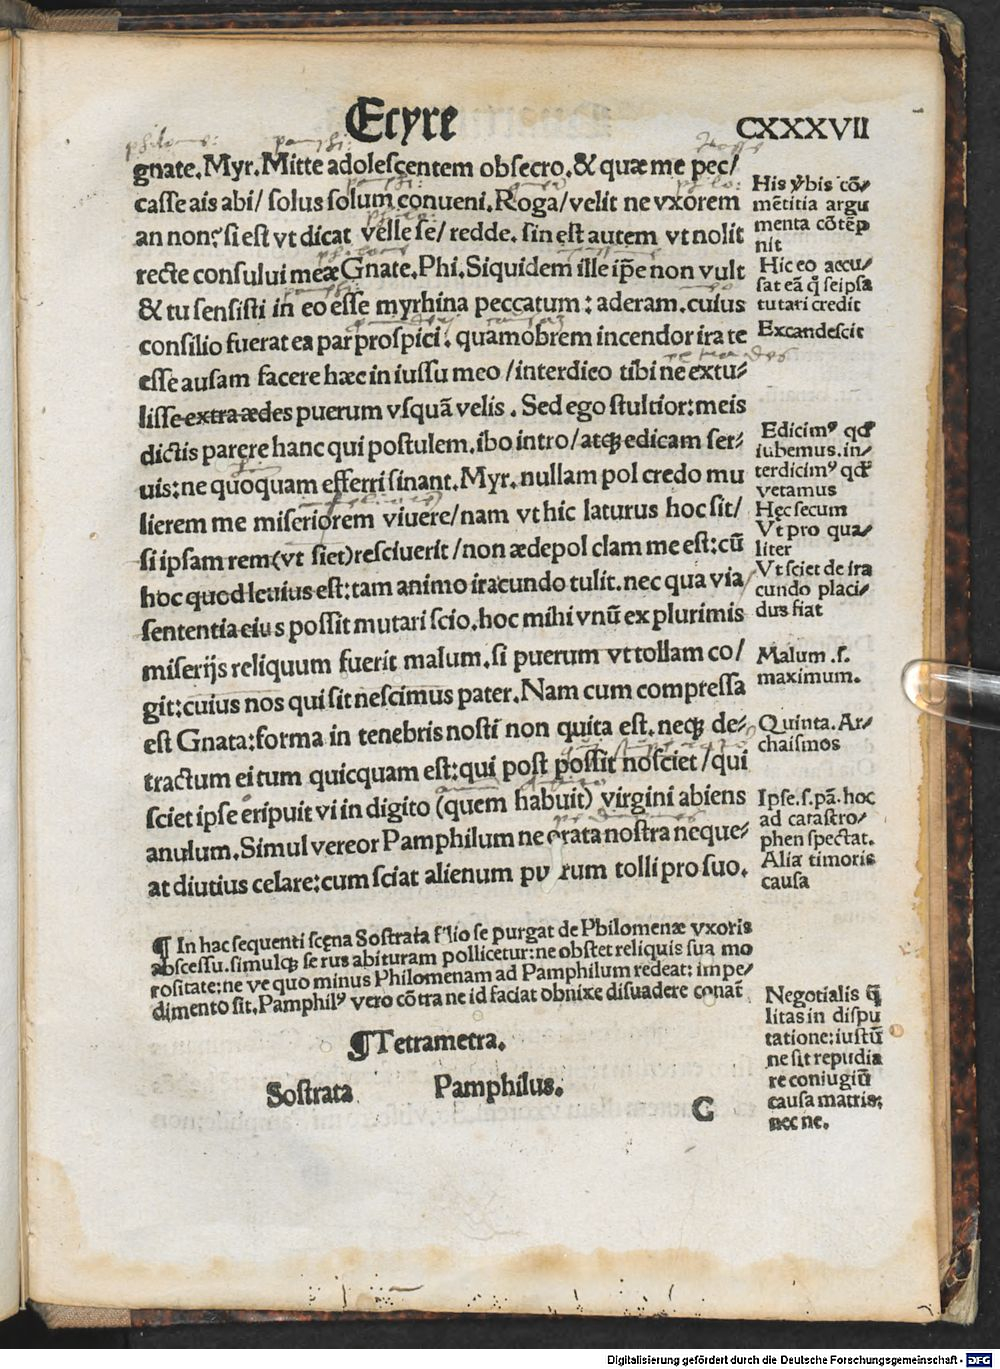 Ecyre
CXXXVII
gnate. Myr. Mitte adolescentem obsecro. & quæ me pec/
casse ais abi/ solus solum conueni. Roga/ velit ne vxorem
an non: si est vt dicat velle se/ redde. sin est autem vt nolit
recte consului meæ Gnate. Phi. Siquidem ille ip̃e non vult
& tu sensisti in eo esse myrhina peccatum: aderam. cuius
consilio fuerat ea par prospici. quamobrem incendor ira te
esse ausam facere hæc in iussu meo / interdico tibi ne extu-
lisse extra ædes puerum vsquã velis. Sed ego stultior: meis
dictis parere hanc qui postulem. ibo intro / atqꝫ edicam ser-
uis: ne quoquam efferri sinant. Myr. nullam pol credo mu
lierem me miseriorem viuere / nam vt hic laturus hoc sit /
si ipsam rem (vt siet) resciuerit / non ædepol clam me est: cũ
hoc quod leuius est: tam animo iracundo tulit. nec qua via
sententia eius possit mutari scio. hoc mihi vnũ ex plurimis
miserijs reliquum fuerit malum. si puerum vt tollam co/
git: cuius nos qui sit nescimus pater. Nam cum compressa
est Gnata: forma in tenebris nosti non quita est. neqꝫ de-
tractum ei tum quicquam est: qui post possit nosciet / qui
sciet ipse eripuit vi in digito (quem habuit) virgini abiens
anulum. Simul vereor Pamphilum ne orata nostra neque-
at diutius celare: cum sciat alienum puerum tolli pro suo.
¶ In hac sequenti scęna Sostrata filio se purgat de Philomenæ vxoris
abscessu. simulqꝫ se rus abituram pollicetur: ne obstet reliquis sua mo
rositate: ne ve quo minus Philomenam ad Pamphilum redeat: impe-
dimento sit. Pamphilꝰ vero cõtra ne id faciat obnixe disuadere conat̃
¶ Tetrametra.
Sostrata Pamphilus.
G
His v̓bis cõ-
mẽtitia argu
menta cõtẽp
nit
Hic eo accu-
sat eã q̃ seipsa
tutari credit
Excandescit
Edicimꝰ qd̓
iubemus. in-
terdicimꝰ qd̓
vetamus
Hęc secum
Vt pro qua-
liter
Vt sciet de ira
cundo placi-
dus fiat
Malum .s.
maximum.
Quinta. Ar-
chaismos
Ipse. s. pã. hoc
ad catastro-
phen spectat.
Alia timoris
causa
Negotialis q̃
litas in dispu
tatione: iustũ
ne sit repudia
re coniugiũ
causa matris:
nec ne.
Digitalisierung gefördert durch die Deutsche Forschungsgemeinschaft - DFG